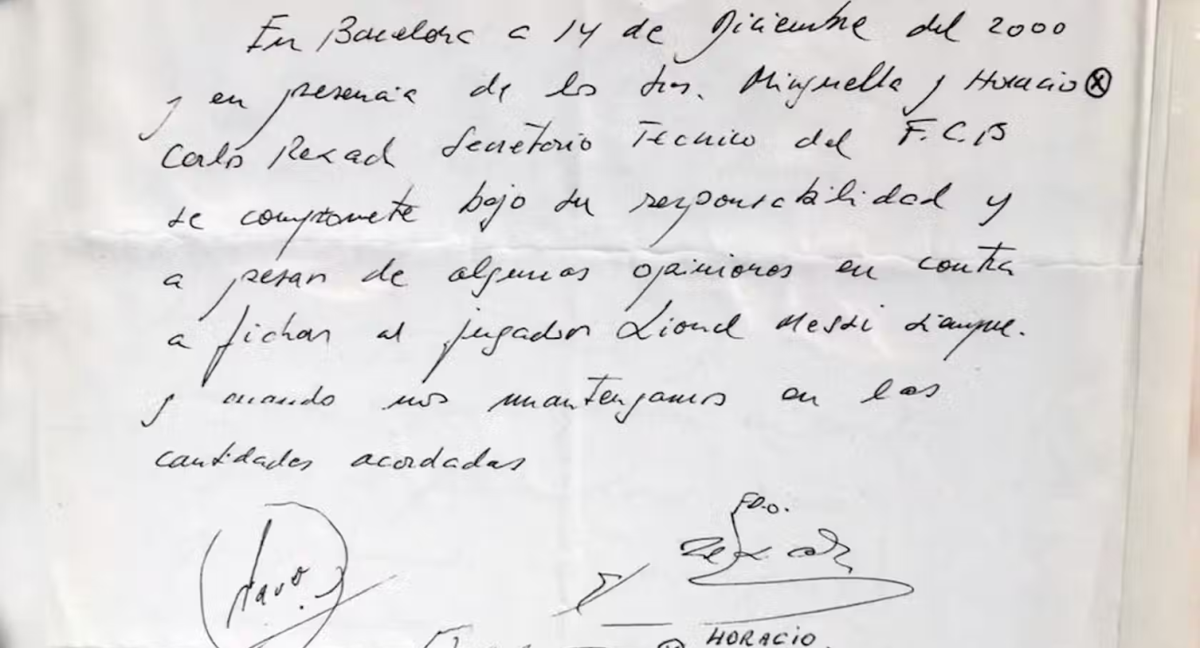 En Barcelona a 14 de Diciembre del 2000
y en presencia de los Srs. Minguella y Horacio ⓧ
Carlos Rexach Secretario Técnico del F.C.B
se compromete bajo su responsabilidad y
a pesar de algunas opiniones en contra
a fichar al jugador Lionel Messi siempre.
y cuando nos mantengamos en las
cantidades acordadas
FDO.
HORACIO